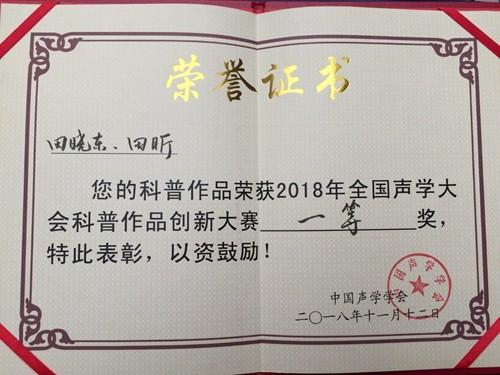 荣誉证书
田晓东、田昕
您的科普作品荣获2018年全国声学大
会科普作品创新大赛一等奖，
特此表彰，以资鼓励！
中国声学学会
中国声学学会
二〇一八年十一月十二日